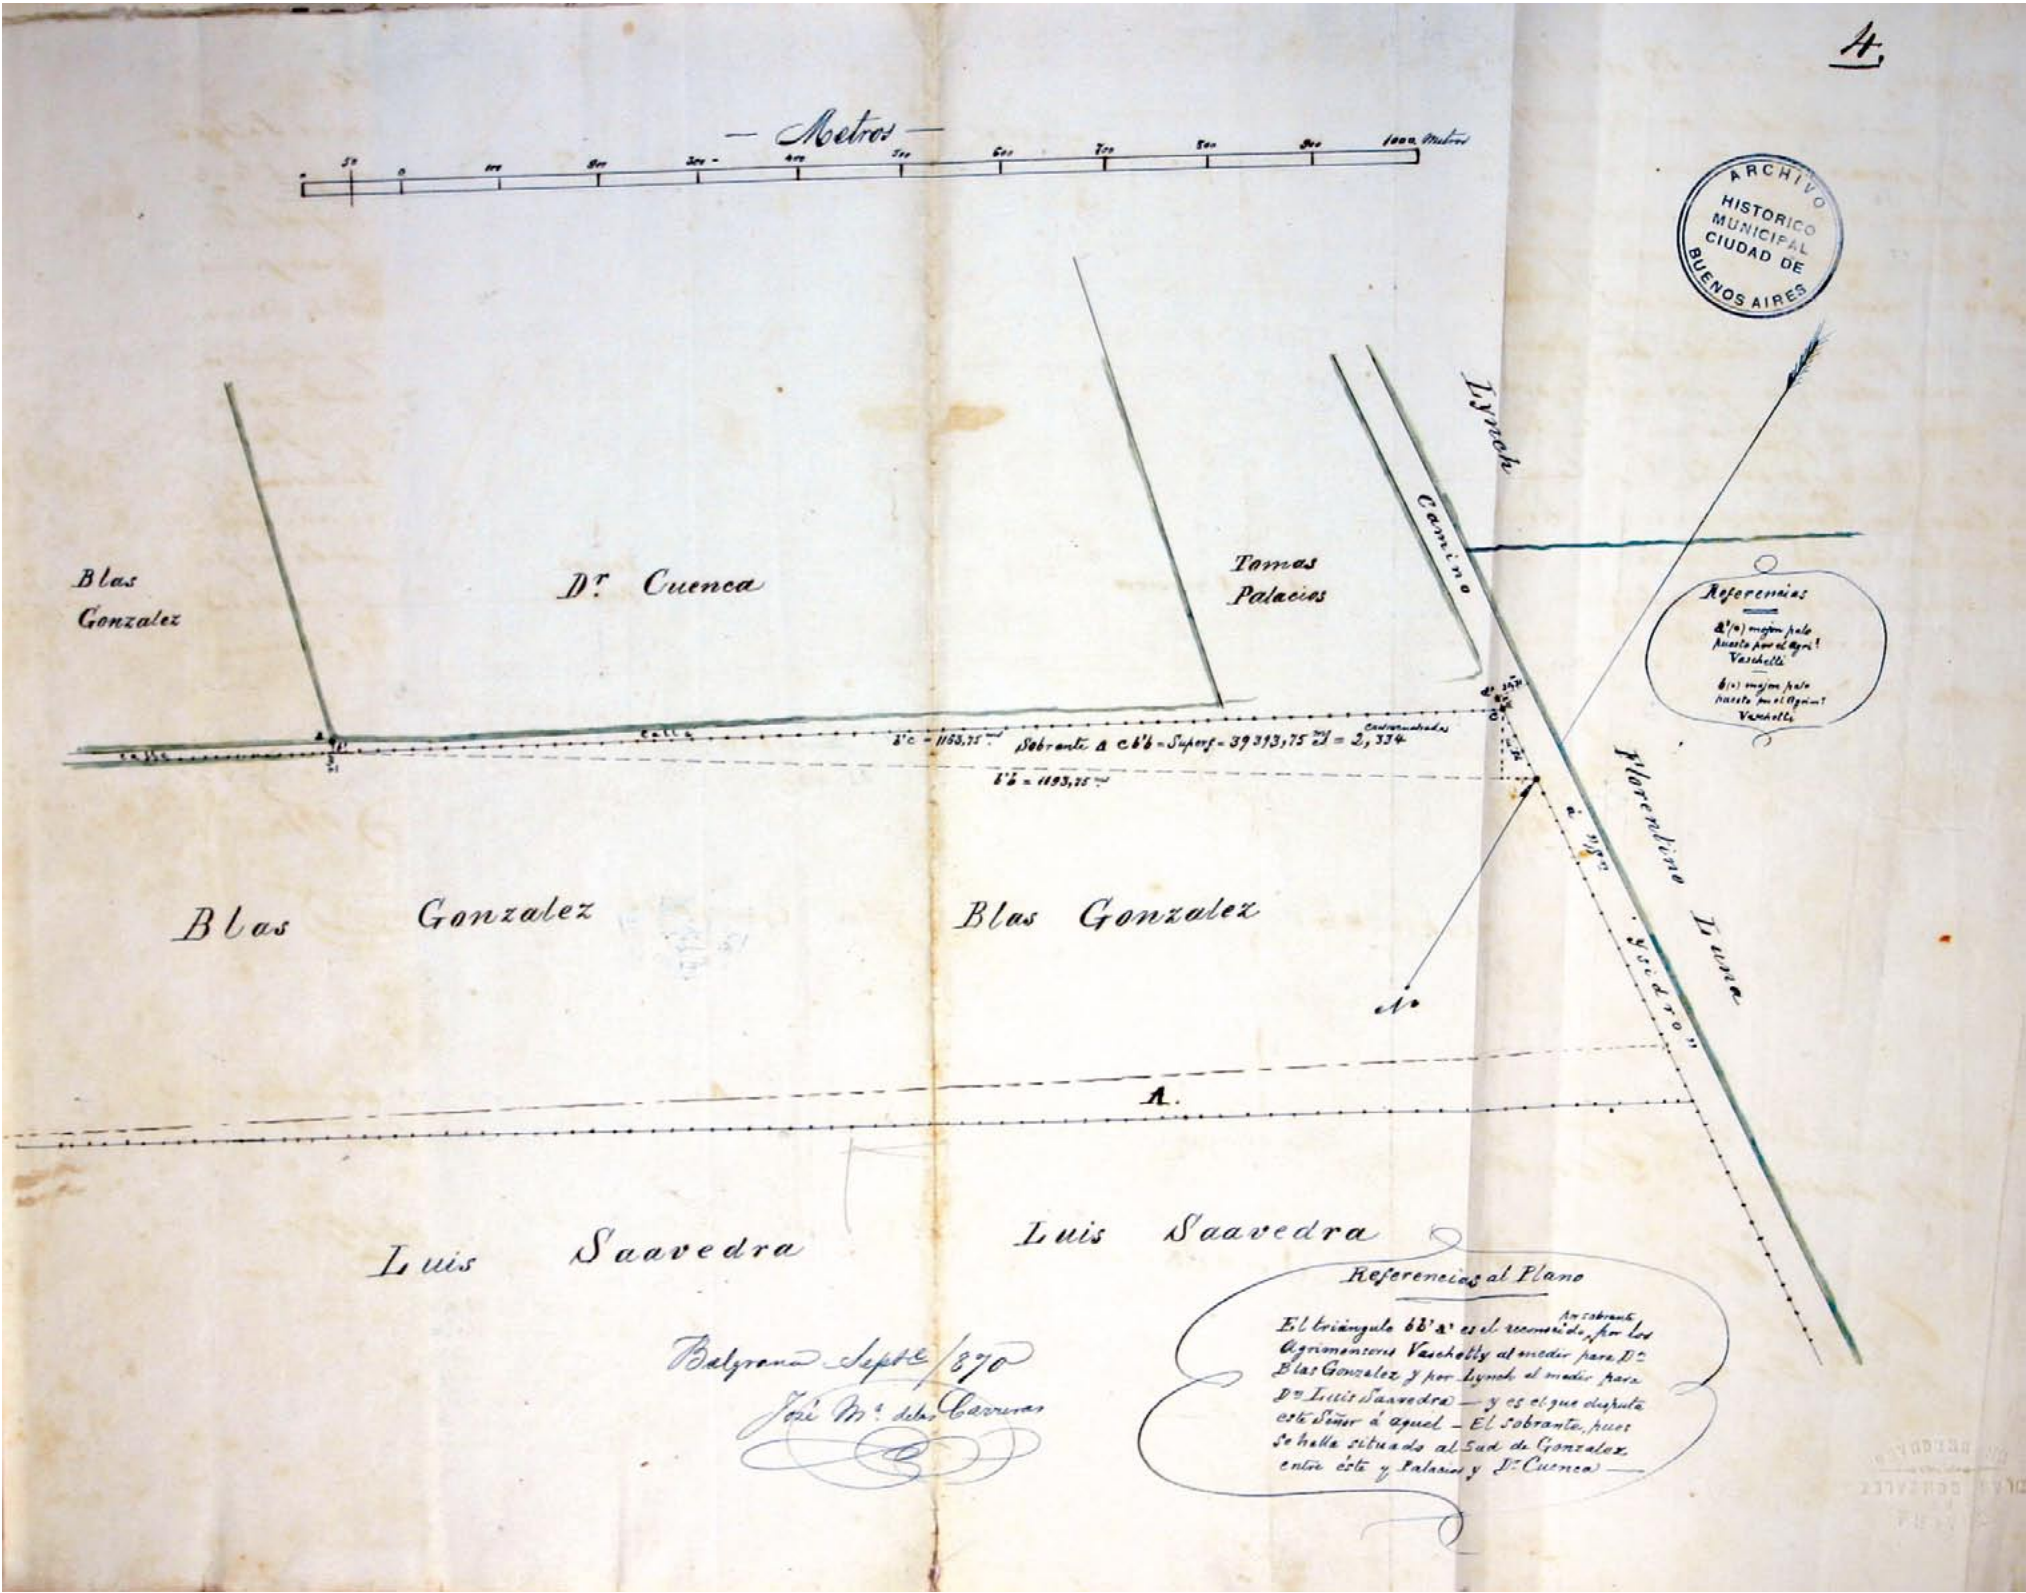 4.
— Metros —
50 0 100 200 300 400 500 600 700 800 900 1000 Metros
ARCHIVO
HISTORICO
MUNICIPAL
CIUDAD DE
BUENOS AIRES
Lynch
Camino
Blas
Gonzalez
Dr. Cuenca
Tomas
Palacios
Referencias
a'(o) mojon palo
puesto por el Agrir
Vaschetti
b(o) mojon palo
puesto por el Agrimr
Vaschetti
calle
calle
b'c = 1163,75 Sobrante a c b'b = Superf = 39393,75 = 2,334 cuadradas
b'b = 1193,75
á Sn Ysidro"
Florentino Luna
Blas Gonzalez
Blas Gonzalez
No
A.
Luis Saavedra
Luis Saavedra
Belgrano Septe /870
José Ma. de las Carreras
Referencias al Plano
El triángulo bb'a' es el reconocido por sobrante, por los
Agrimensores Vaschetty al medir para Dn
Blas Gonzalez y por Lynch al medir para
Dn Luis Saavedra — y es el que disputa
este Señor á aquel — El sobrante, pues
se halla situado al Sud de Gonzalez
entre éste y Palacios y Dr Cuenca —